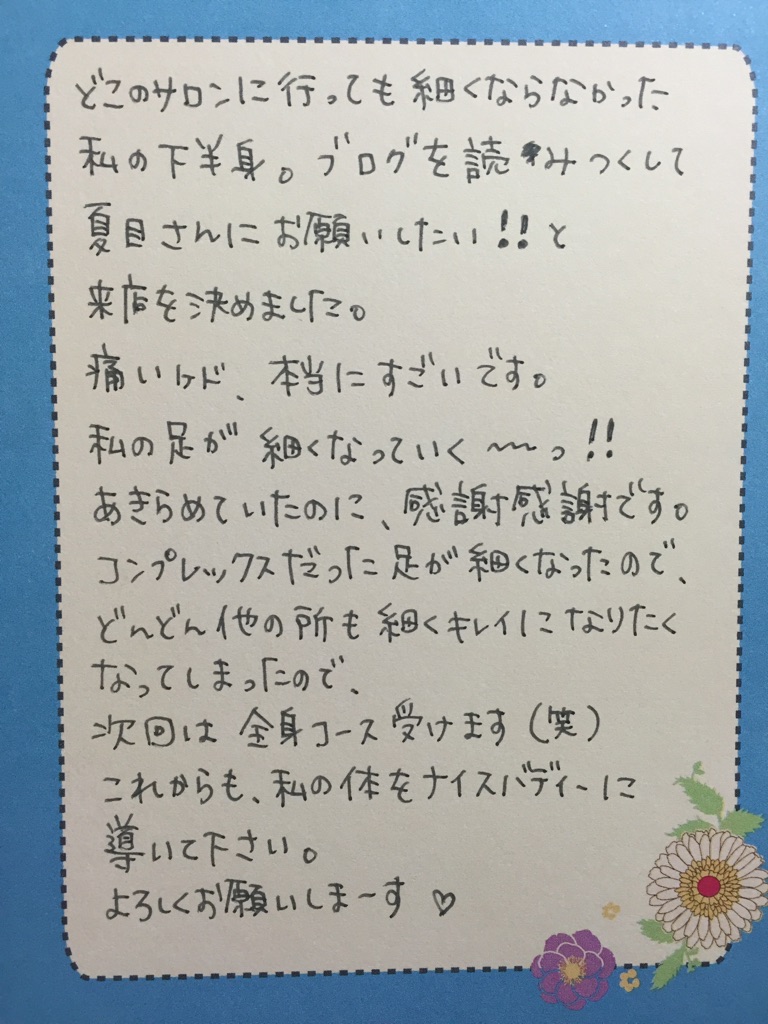 どこのサロンに行っても細くならなかった
私の下半身。ブログを読みつくして
夏目さんにお願いしたい!!と
来店を決めました。
痛いけド、本当にすごいです。
私の足が細くなっていく〜〜っ!!
あきらめていたのに、感謝感謝です。
コンプレックスだった足が細くなったので、
どんどん他の所も細くキレイになりたく
なってしまったので、
次回は全身コース受けます(笑)
これからも、私の体をナイスバディーに
導いて下さい。
よろしくお願いしまーす♡